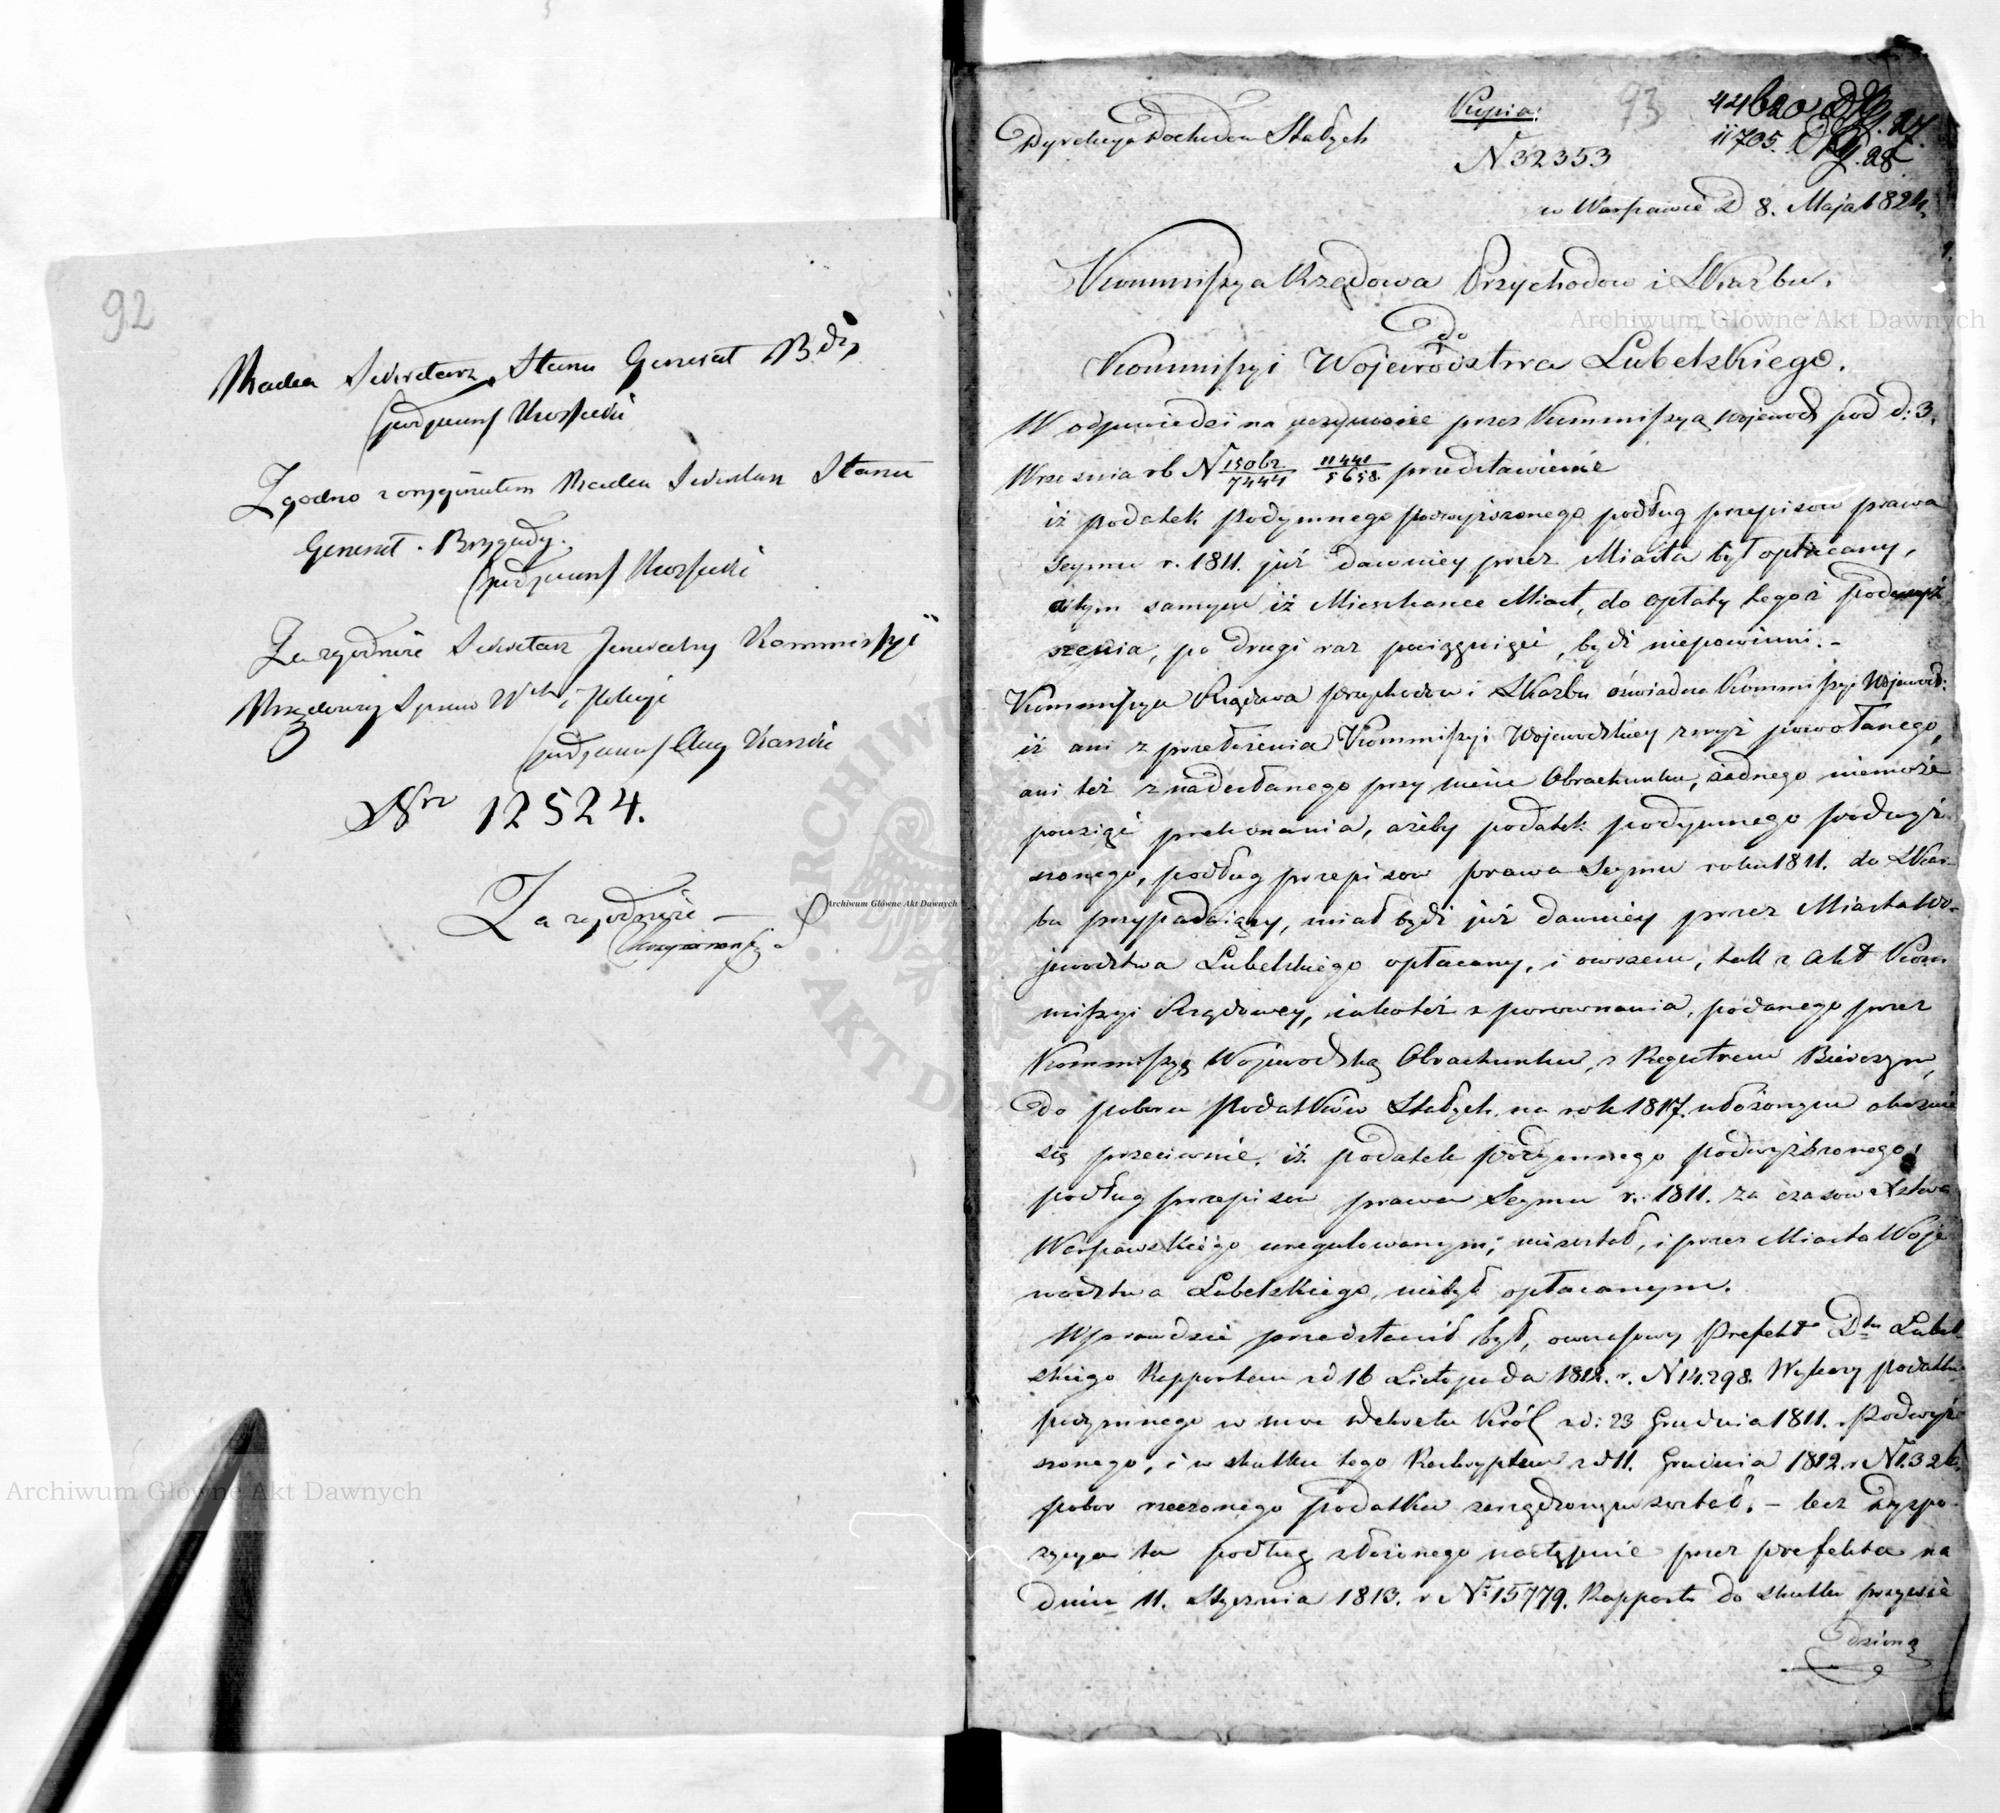 92
Radca Sekretarz Stanu Generał Bdy
(podpisano) Kossecki
Zgodno z oryginałem Radca Sekretarz Stanu
Generał Brygady.
(podpisano) Kossecki
Za zgodność Sekretarz Jeneralny Kommissyi
Rządowey Spraw Wch i Policyi
(podpisano) Aug Karski
Nro 12524.
Za zgodność —
Dyrekcya Dochodów Stałych
Kopia:
N 32353
93
44620
11705.
w Warszawie D 8. Maja 1824.
Kommissya Rządowa Przychodow i Skarbu.
do
Kommissyi Woiewodztwa Lubelskiego.
W odpowiedzi na uczynione przez Kommissyą Wojewod pod d: 3.
Września rb N 15062/7444 11441/5658 przedstawienie
iż podatek Podymnego podwyższonego podług przepisow prawa
Seymu r. 1811. już dawniey przez Miasta był opłacany,
a tym samym iż Mieszkance Miast, do opłaty tegoż Podwyż
szenia, po drugi raz pociągnięci, bydź niepowinni. –
Kommissya Rządowa Przychodow i Skarbu oświadcza Kommissyi Wojewod:
iż ani z przełożenia Kommissyi Wojewodzkiey zwyż powołanego,
ani też z nadesłanego przy niem Obrachunku, żadnego niemoże
powziąć przekonania, ażeby podatek podymnego podwyż
szonego, podług przepisow prawa Seymu roku 1811. do Skar-
bu przypadaiący, miał bydź już dawniey przez Miasta Wo-
jewodztwa Lubelskiego opłacany, i owszem, tak z Akt Kom-
missyi Rządowey, iakoteż z porownania, podanego przez
Kommissyą Wojewodzką Obrachunku, z Regestrem Bierczym,
do poboru Podatków Stałych na rok 1817. ułożonym okazuie
się przeciwnie, iż podatek podymnego podwyższonego,
podług przepisow prawa Seymu r. 1811. za czasow Xstwa
Warszawskiego uregulowanym, niezostał, i przez Miasta Woje
wodztwa Lubelskiego, niebył opłacanym.
Wprawdzie przedstawił był, owczesowy Prefekt Dtu Lubel-
skiego Rapportem z d 16 Listopada 1812. r. N 14.298. Wykazy podatku
podymnego w moc Dekretu Król z d: 23 Grudnia 1811. Podwyż-
szonego, i w skutku tego Reskryptem z d 11. Grudnia 1812. r N 1326,
pobor rzeczonego podatku zarządzonym został. – lecz Dyspo-
zycya ta podług złożonego następnie przez prefekta na
dniu 11. Stycznia 1813. r No 15779. Rapportu do skutku przywie
dzioną